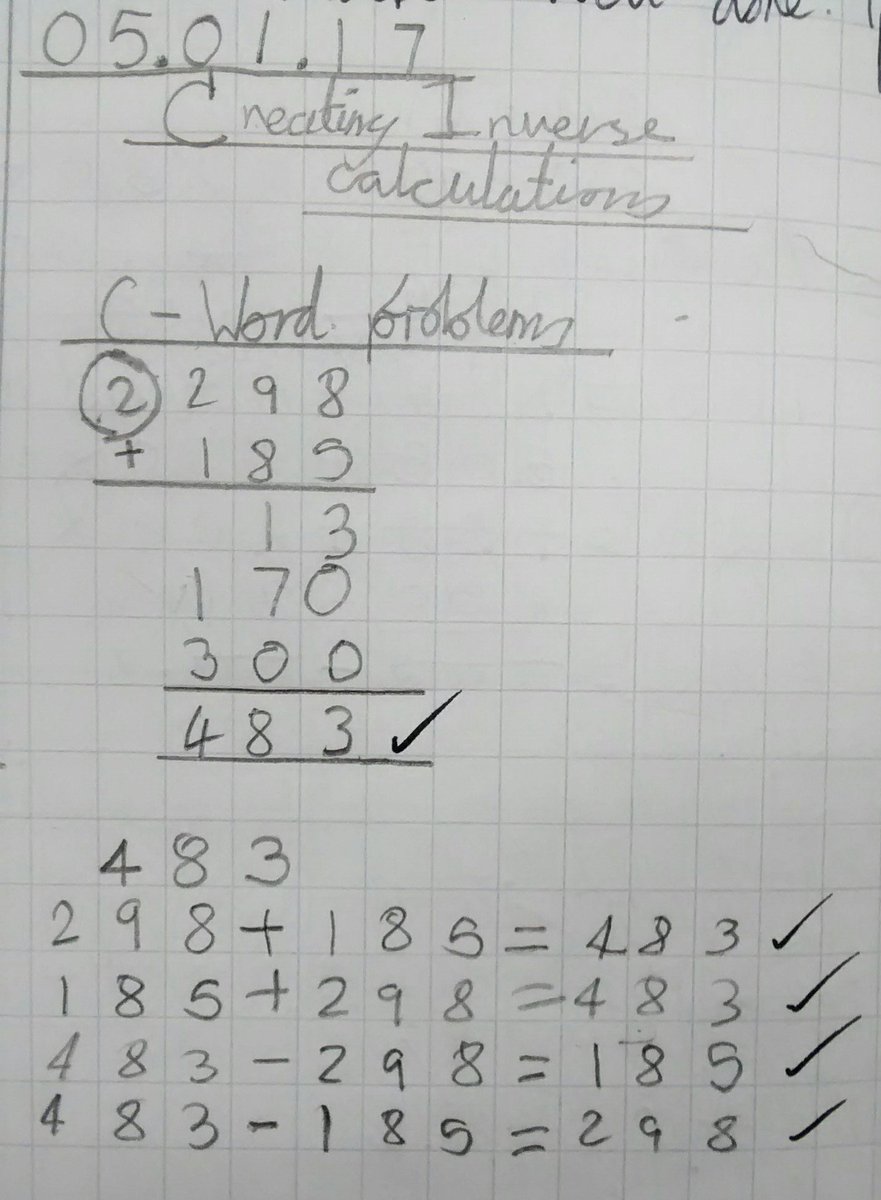 done.
05.01.17
Creating Inverse
calculations
C - Word problems
2 298
+ 185
13
170
300
483 ✓
483
298+185=483 ✓
185+298=483 ✓
483-298=185 ✓
483-185=298 ✓